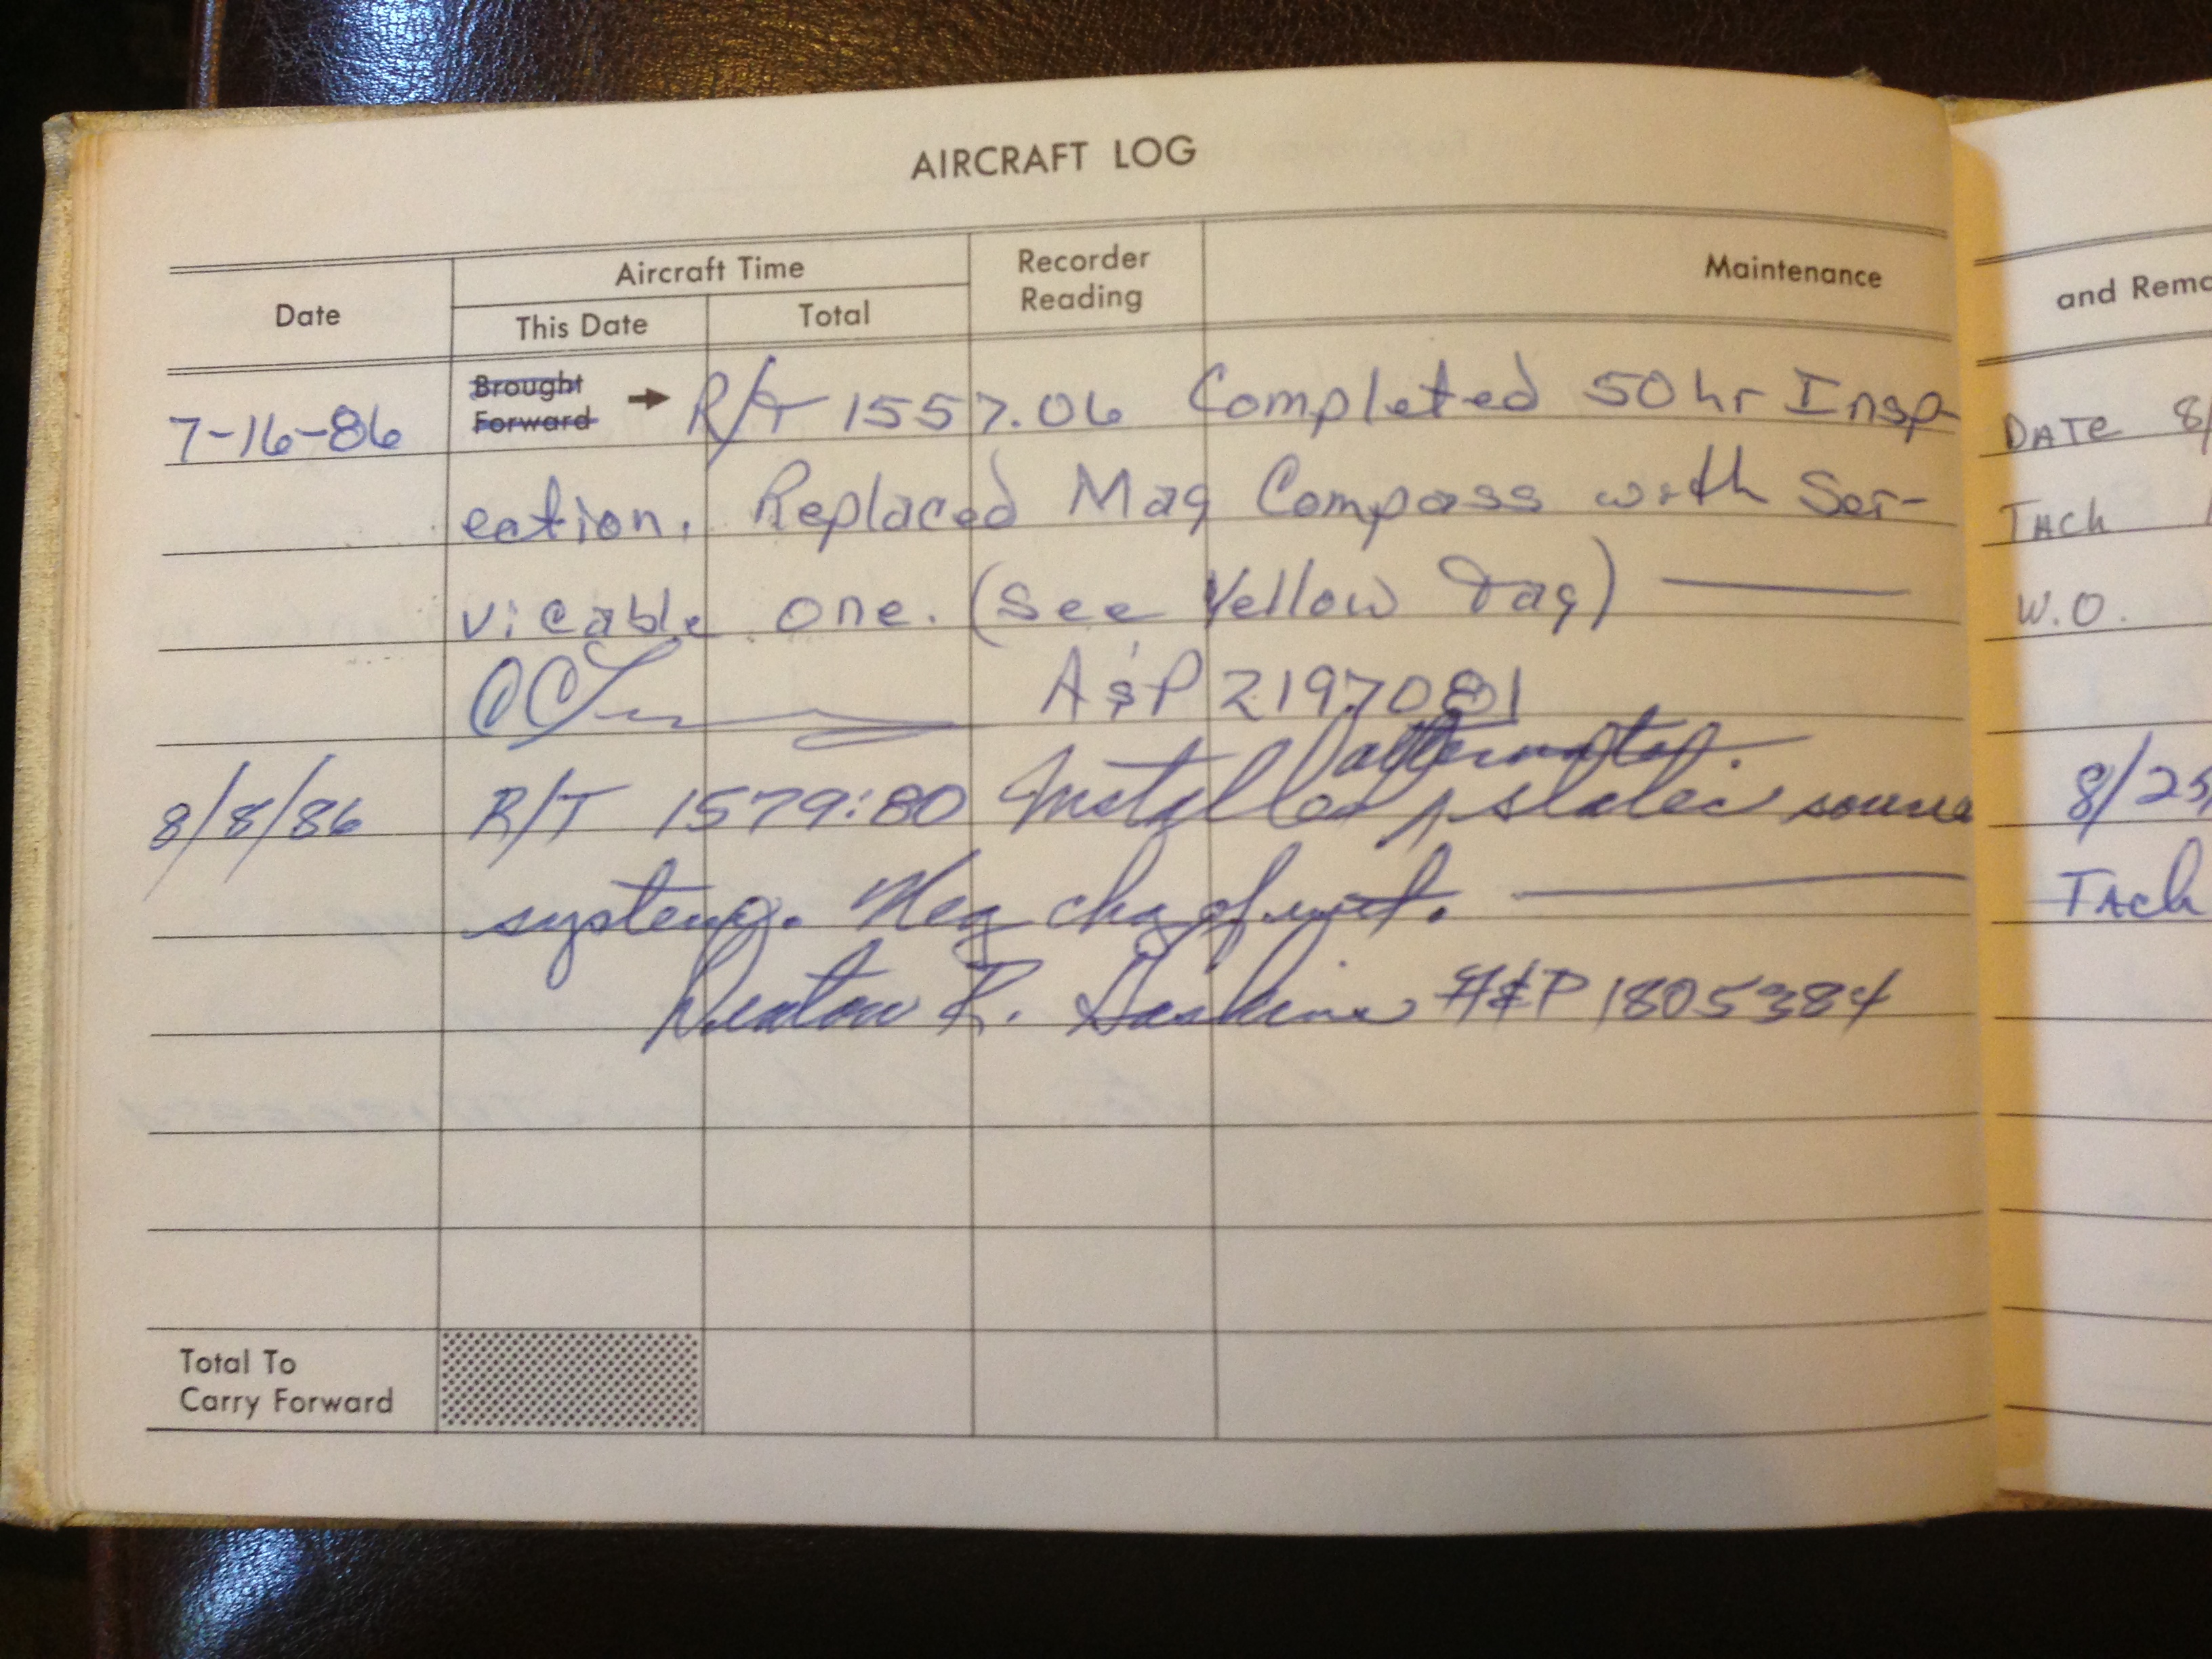 AIRCRAFT LOG
Date
Aircraft Time
This Date
Total
Recorder
Reading
Maintenance
7-16-86 Brought Forward → R/T 1557.06 Completed 50 hr Insp-
ection. Replaced Mag Compass with Ser-
vicable one. (See Yellow Tag)
A&P 2197081
alternate
8/8/86 R/T 1579:80 Installed static source
system. Neg chg of wt.
R. Haskins A&P 1805384
Total To
Carry Forward
and Rema
DATE 8/
TACH 1
W.O.
8/25
TACH